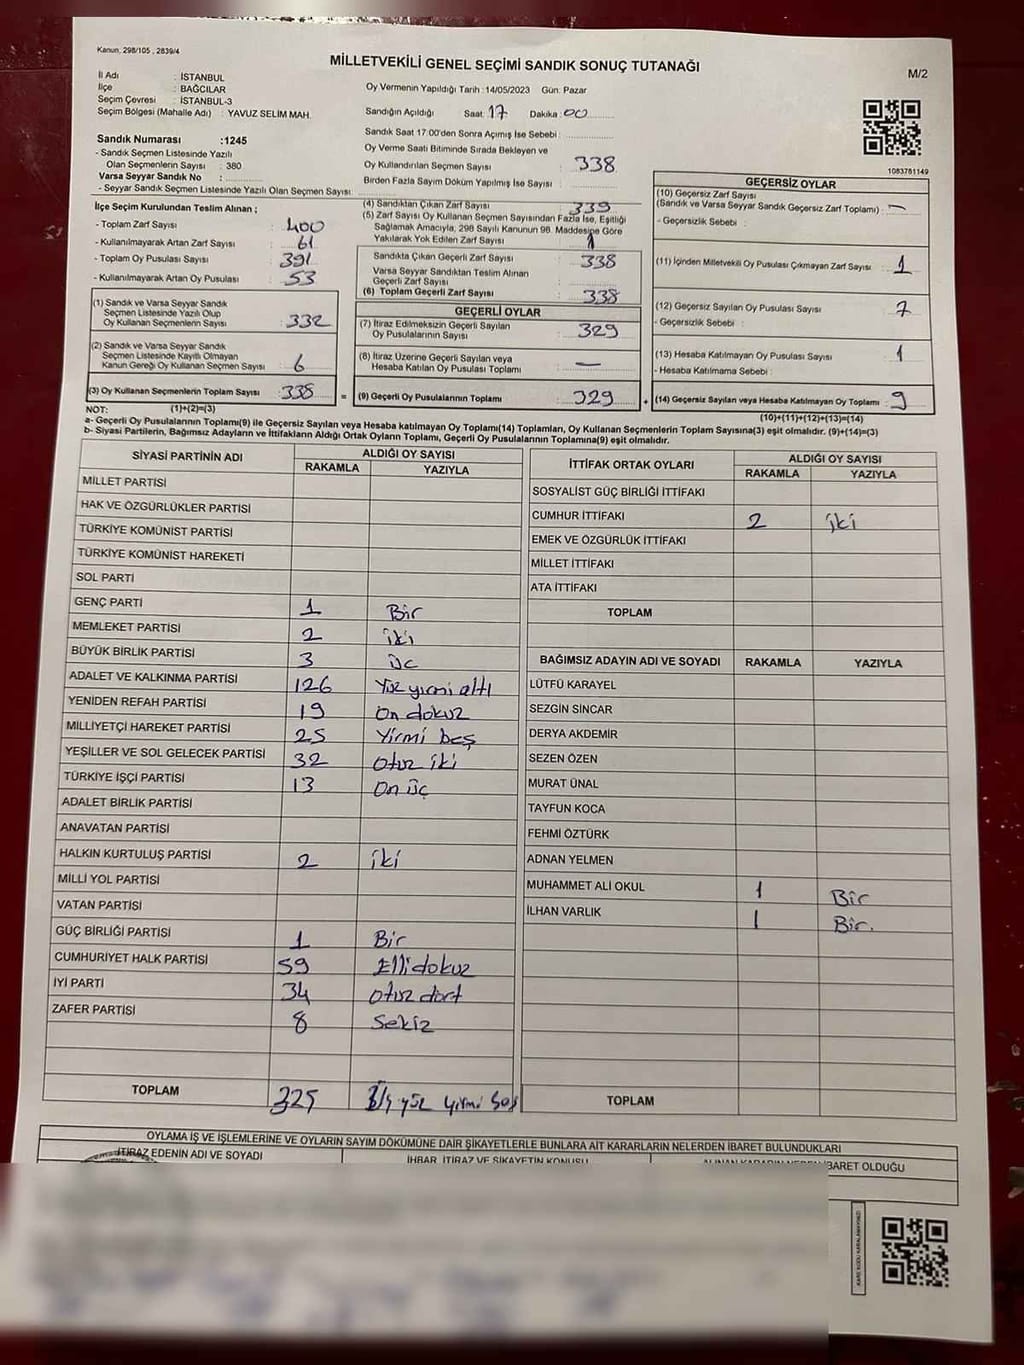 Kanun, 298/105 , 2839/4
MİLLETVEKİLİ GENEL SEÇİMİ SANDIK SONUÇ TUTANAĞI
M/2
İl Adı : İSTANBUL
İlçe : BAĞCILAR
Seçim Çevresi : İSTANBUL-3
Seçim Bölgesi (Mahalle Adı) : YAVUZ SELİM MAH.
Oy Vermenin Yapıldığı Tarih : 14/05/2023 Gün: Pazar
Sandığın Açıldığı Saat: 17 Dakika: 00
Sandık Saat 17:00'den Sonra Açımış İse Sebebi :
Oy Verme Saati Bitiminde Sırada Bekleyen ve
Oy Kullandırılan Seçmen Sayısı : 338
Birden Fazla Sayım Döküm Yapılmış İse Sayısı :
1083781149
Sandık Numarası :1245
- Sandık Seçmen Listesinde Yazılı
Olan Seçmenlerin Sayısı : 380
Varsa Seyyar Sandık No :
- Seyyar Sandık Seçmen Listesinde Yazılı Olan Seçmen Sayısı:
İlçe Seçim Kurulundan Teslim Alınan ;
- Toplam Zarf Sayısı : 400
- Kullanılmayarak Artan Zarf Sayısı : 61
- Toplam Oy Pusulası Sayısı : 391
- Kullanılmayarak Artan Oy Pusulası : 53
(1) Sandık ve Varsa Seyyar Sandık
Seçmen Listesinde Yazılı Olup
Oy Kullanan Seçmenlerin Sayısı : 332
(2) Sandık ve Varsa Seyyar Sandık
Seçmen Listesinde Kayıtlı Olmayan
Kanun Gereği Oy Kullanan Seçmen Sayısı : 6
(3) Oy Kullanan Seçmenlerin Toplam Sayısı : 338
(1)+(2)=(3)
(4) Sandıktan Çıkan Zarf Sayısı : 339
(5) Zarf Sayısı Oy Kullanan Seçmen Sayısından Fazla İse, Eşitliği
Sağlamak Amacıyla, 298 Sayılı Kanunun 98. Maddesine Göre
Yakılarak Yok Edilen Zarf Sayısı : 1
Sandıkta Çıkan Geçerli Zarf Sayısı : 338
Varsa Seyyar Sandıktan Teslim Alınan
Geçerli Zarf Sayısı :
(6) Toplam Geçerli Zarf Sayısı : 338
GEÇERLİ OYLAR
(7) İtiraz Edilmeksizin Geçerli Sayılan
Oy Pusulalarının Sayısı : 329
(8) İtiraz Üzerine Geçerli Sayılan veya
Hesaba Katılan Oy Pusulası Toplamı : —
= (9) Geçerli Oy Pusulalarının Toplamı : 329 +
GEÇERSİZ OYLAR
(10) Geçersiz Zarf Sayısı
(Sandık ve Varsa Seyyar Sandık Geçersiz Zarf Toplamı) : —
- Geçersizlik Sebebi :
(11) İçinden Milletvekili Oy Pusulası Çıkmayan Zarf Sayısı : 1
(12) Geçersiz Sayılan Oy Pusulası Sayısı : 7
- Geçersizlik Sebebi :
(13) Hesaba Katılmayan Oy Pusulası Sayısı : 1
- Hesaba Katılmama Sebebi :
(14) Geçersiz Sayılan veya Hesaba Katılmayan Oy Toplamı : 9
(10)+(11)+(12)+(13)=(14)
NOT:
a- Geçerli Oy Pusulalarının Toplamı(9) ile Geçersiz Sayılan veya Hesaba katılmayan Oy Toplamı(14) Toplamları, Oy Kullanan Seçmenlerin Toplam Sayısına(3) eşit olmalıdır. (9)+(14)=(3)
b- Siyasi Partilerin, Bağımsız Adayların ve İttifakların Aldığı Ortak Oyların Toplamı, Geçerli Oy Pusulalarının Toplamına(9) eşit olmalıdır.
SİYASİ PARTİNİN ADI ALDIĞI OY SAYISI
RAKAMLA YAZIYLA
MİLLET PARTİSİ
HAK VE ÖZGÜRLÜKLER PARTİSİ
TÜRKİYE KOMÜNİST PARTİSİ
TÜRKİYE KOMÜNİST HAREKETİ
SOL PARTİ
GENÇ PARTİ 1 Bir
MEMLEKET PARTİSİ 2 iki
BÜYÜK BİRLİK PARTİSİ 3 üc
ADALET VE KALKINMA PARTİSİ 126 Yüz yirmi altı
YENİDEN REFAH PARTİSİ 19 On dokuz
MİLLİYETÇİ HAREKET PARTİSİ 25 Yirmi beş
YEŞİLLER VE SOL GELECEK PARTİSİ 32 Otuz iki
TÜRKİYE İŞÇİ PARTİSİ 13 On üç
ADALET BİRLİK PARTİSİ
ANAVATAN PARTİSİ
HALKIN KURTULUŞ PARTİSİ 2 iki
MİLLİ YOL PARTİSİ
VATAN PARTİSİ
GÜÇ BİRLİĞİ PARTİSİ 1 Bir
CUMHURİYET HALK PARTİSİ 59 Elli dokuz
İYİ PARTİ 34 Otuz dört
ZAFER PARTİSİ 8 Sekiz
TOPLAM 325 yüz yirmi beş
İTTİFAK ORTAK OYLARI ALDIĞI OY SAYISI
RAKAMLA YAZIYLA
SOSYALİST GÜÇ BİRLİĞİ İTTİFAKI
CUMHUR İTTİFAKI 2 iki
EMEK VE ÖZGÜRLÜK İTTİFAKI
MİLLET İTTİFAKI
ATA İTTİFAKI
TOPLAM
BAĞIMSIZ ADAYIN ADI VE SOYADI RAKAMLA YAZIYLA
LÜTFÜ KARAYEL
SEZGİN SİNCAR
DERYA AKDEMİR
SEZEN ÖZEN
MURAT ÜNAL
TAYFUN KOCA
FEHMİ ÖZTÜRK
ADNAN YELMEN
MUHAMMET ALİ OKUL 1 Bir
İLHAN VARLIK 1 Bir.
TOPLAM
OYLAMA İŞ VE İŞLEMLERİNE VE OYLARIN SAYIM DÖKÜMÜNE DAİR ŞİKAYETLERLE BUNLARA AİT KARARLARIN NELERDEN İBARET BULUNDUKLARI
İTİRAZ EDENİN ADI VE SOYADI
İHBAR, İTİRAZ VE ŞİKAYETİN KONUSU
ALINAN KARARIN NEDEN İBARET OLDUĞU
KARE KODU KARALAMAYINIZ!